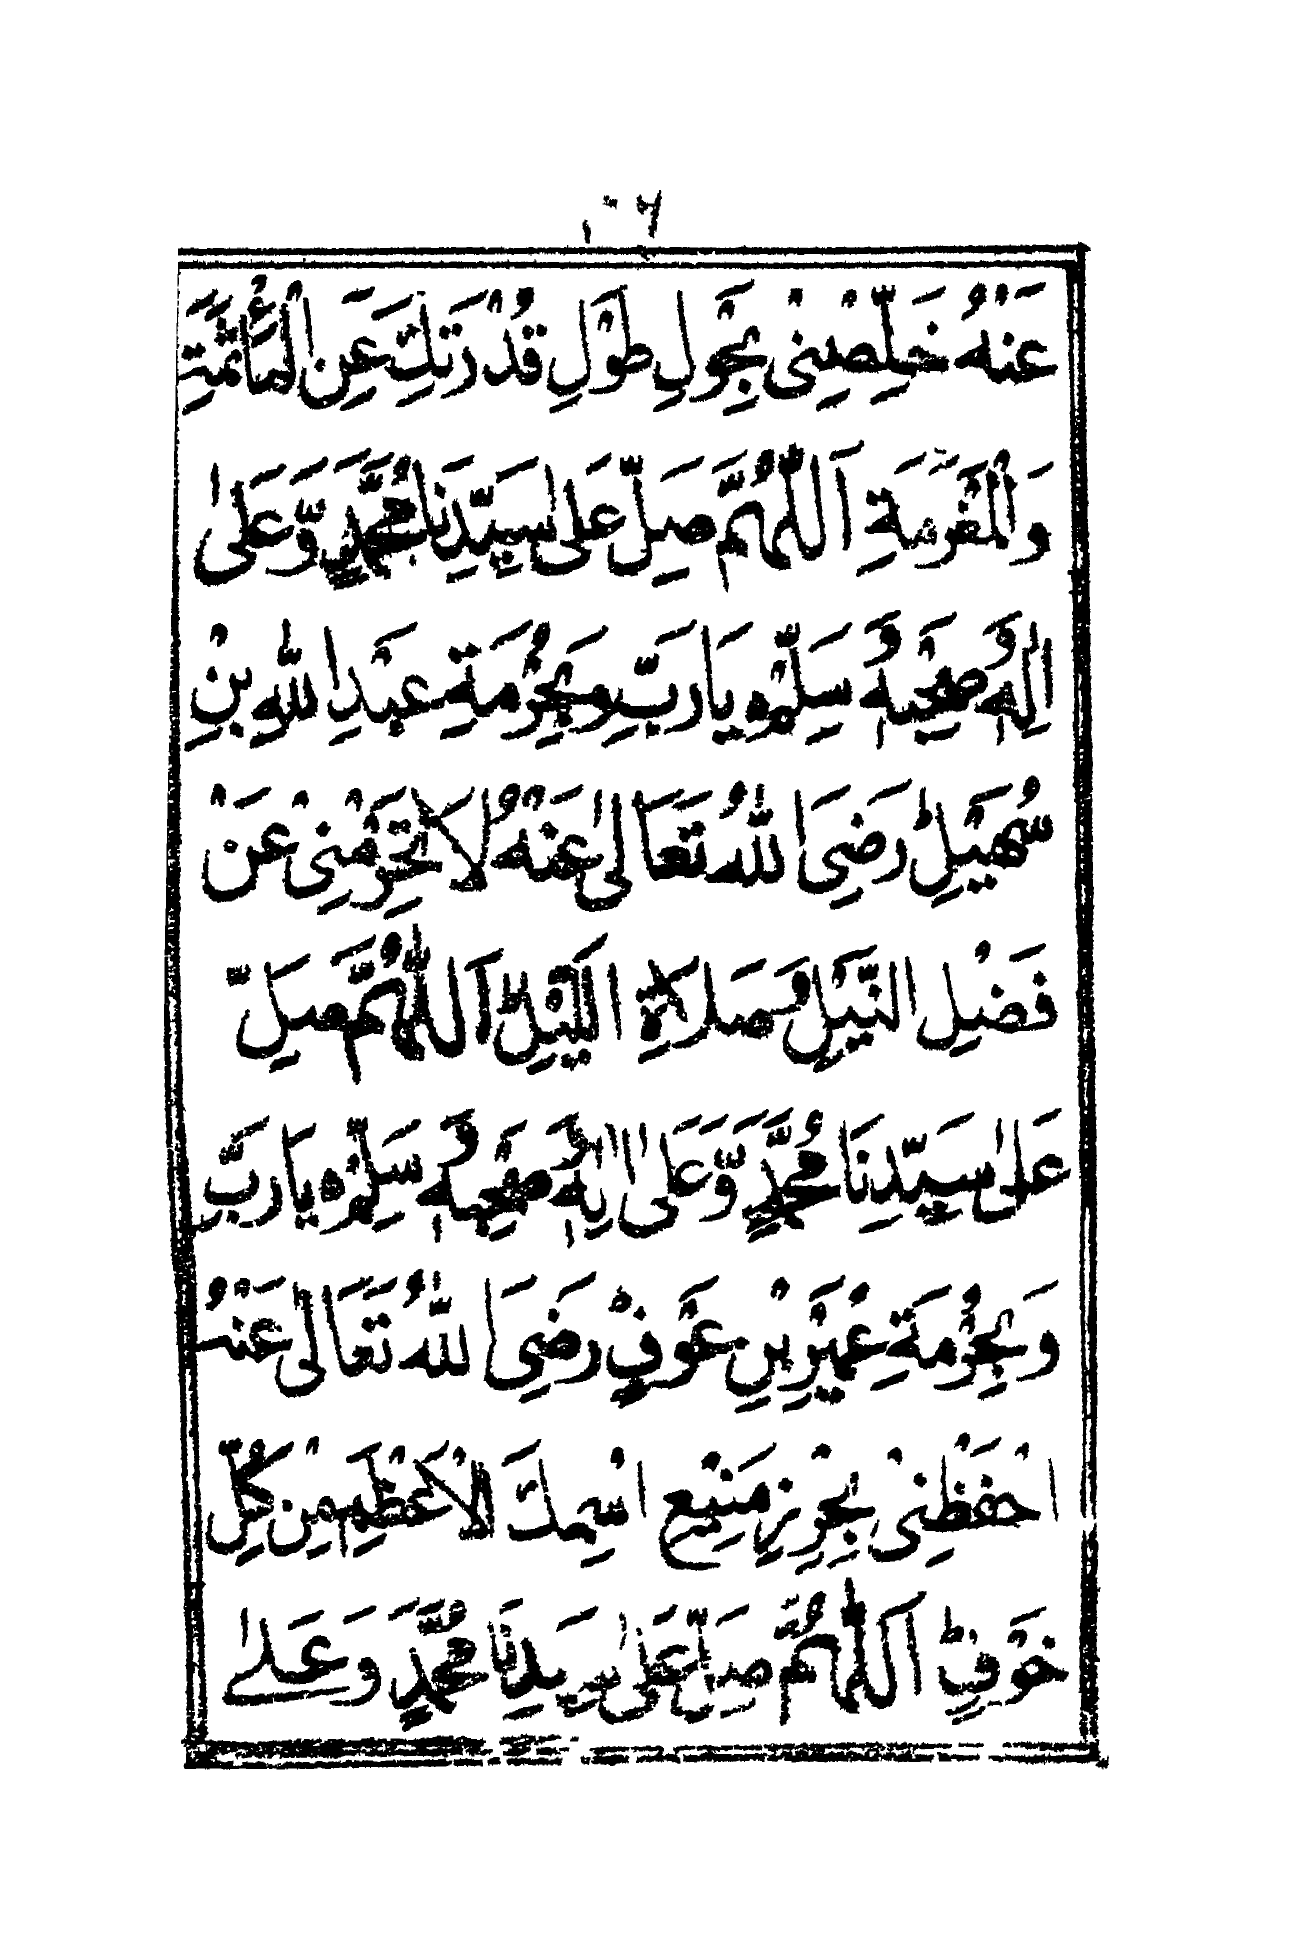 ١٠٦
عَنْهُ خَلِّصْنِیْ بِحَوْلِ طَوْلِ قُدْرَتِكَ عَنِ الْمَأْثَمَةِ
وَالْمَغْرَمَةِ اَللّٰهُمَّ صَلِّ عَلٰی سَيِّدِنَا مُحَمَّدٍ وَّعَلٰی
اٰلِهٖ وَصَحْبِهٖ وَسَلِّمْ يَا رَبِّ وَبِحُرْمَةِ عَبْدِ اللّٰهِ بْنِ
سُهَيْلٍ رَضِیَ اللّٰهُ تَعَالٰی عَنْهُ لَا تَحْرِمْنِیْ عَنْ
فَضْلِ النَّيْلِ وَصَلَاةِ اللَّيْلِ اَللّٰهُمَّ صَلِّ
عَلٰی سَيِّدِنَا مُحَمَّدٍ وَّعَلٰی اٰلِهٖ وَصَحْبِهٖ وَسَلِّمْ يَا رَبِّ
وَبِحُرْمَةِ عُمَيْرِ بْنِ عَوْفٍ رَضِیَ اللّٰهُ تَعَالٰی عَنْهُ
احْفَظْنِیْ بِحِرْزِ مَنِيْعِ اسْمِكَ الْاَعْظَمِ مِنْ كُلِّ
خَوْفٍ اَللّٰهُمَّ صَلِّ عَلٰی سَيِّدِنَا مُحَمَّدٍ وَعَلٰی